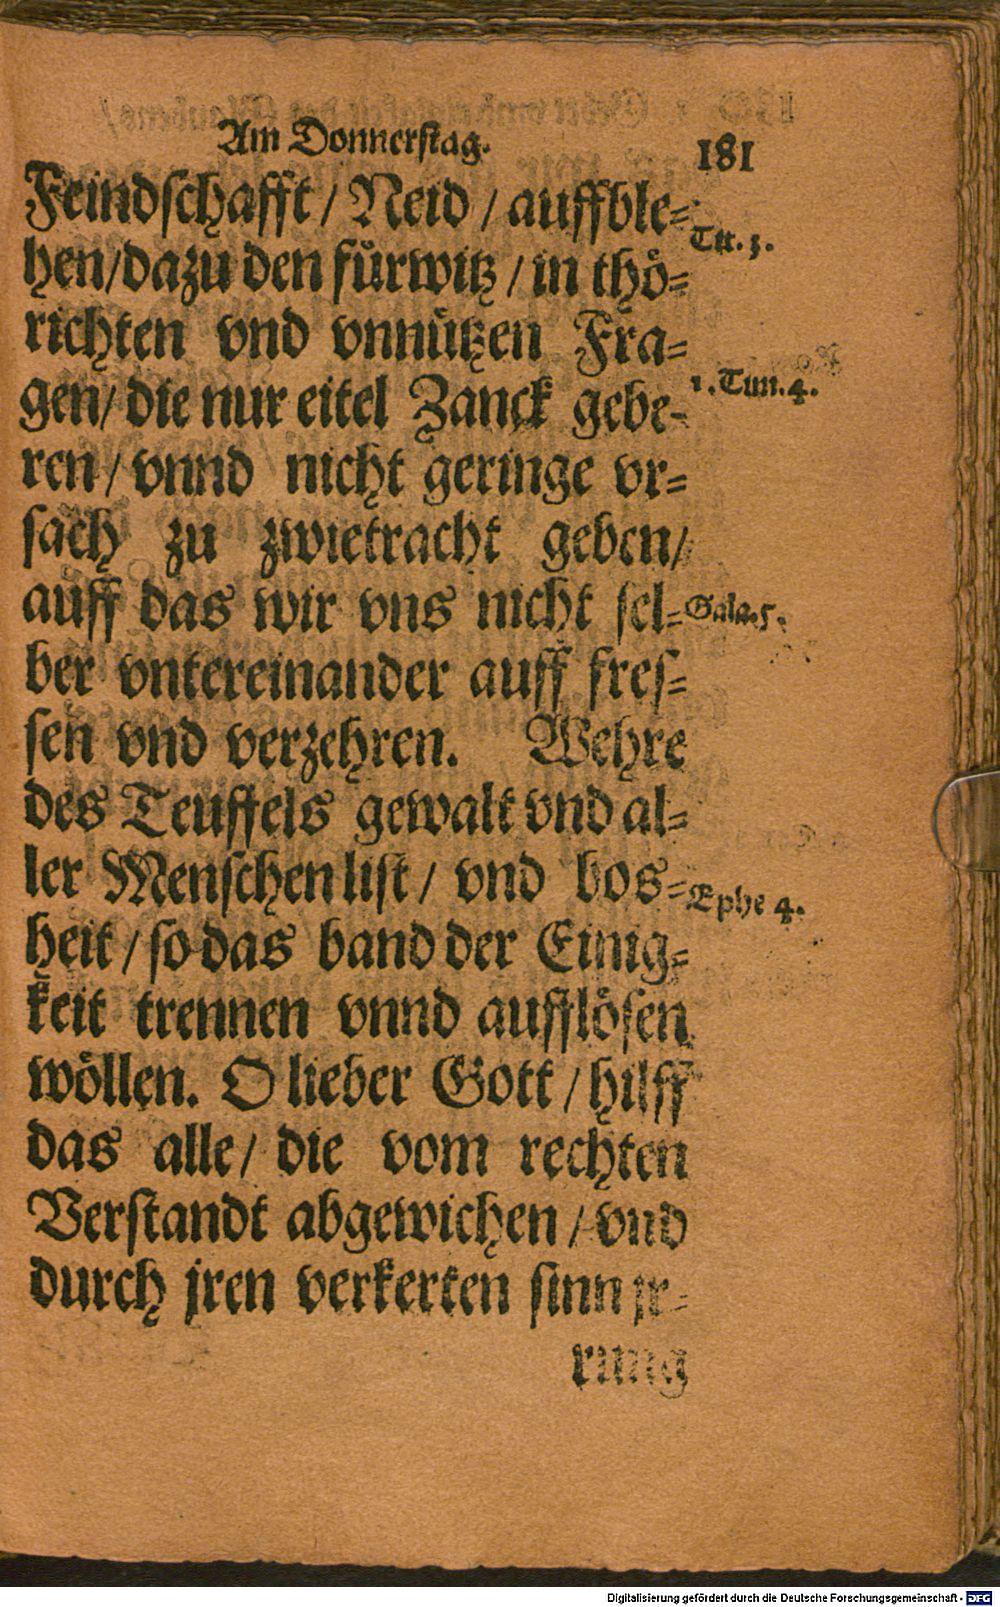 Am Donnerstag. 181
Feindschafft / Neid / auffble-
Tit. 3.
hen/dazu den fürwitz / in thö-
richten vnd vnnützen Fra-
gen/ die nur eitel Zanck gebe-
1. Tim. 4.
ren / vnnd nicht geringe vr-
sach zu zwietracht geben/
auff das wir vns nicht sel-
Gala. 5.
ber vntereinander auff fres-
sen vnd verzehren. Wehre
des Teuffels gewalt vnd al-
ler Menschen list / vnd bos-
Ephe 4.
heit / so das band der Einig-
keit trennen vnnd aufflösen
wöllen. O lieber Gott / hilff
das alle/ die vom rechten
Verstandt abgewichen / vnd
durch jren verkerten sinn jr-
rung
Digitalisierung gefördert durch die Deutsche Forschungsgemeinschaft - DFG